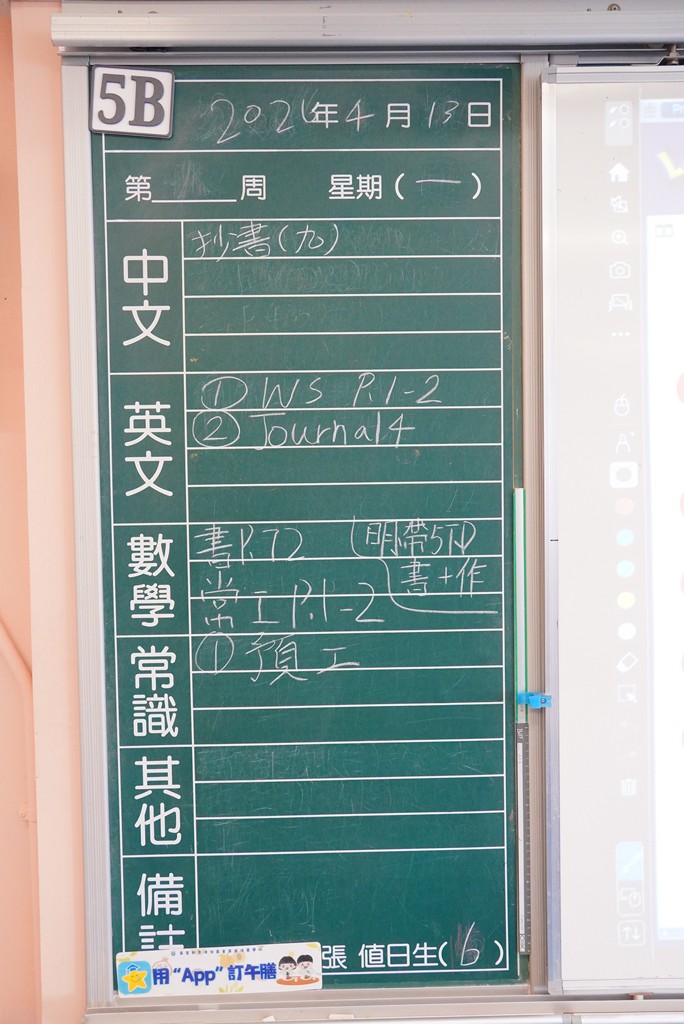 5B
2026年4月13日
第____周 星期(一)
中文
抄書(九)
英文
① WS P.1-2
② Journal 4
數學
書P.72
明帶5下D
書+作
常工P.1-2
常識
① 預工
其他
備註
張 值日生(6)
用“App”訂午膳